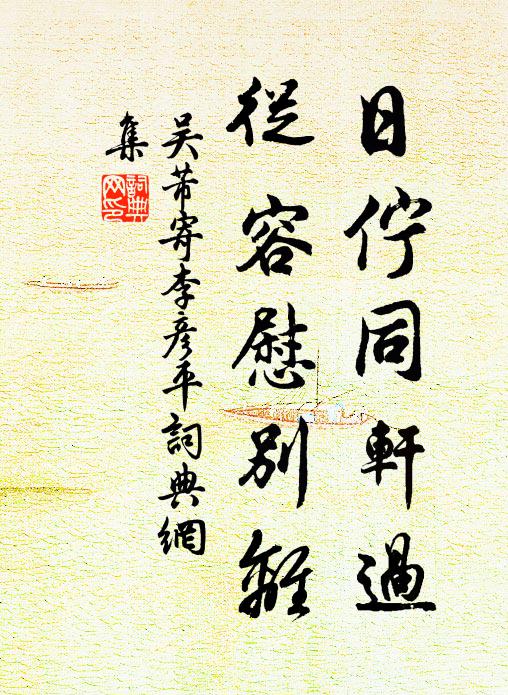 日佇同軒過
從容慰別離
吴芾寄李彦平詞典網
集
詞典
网印